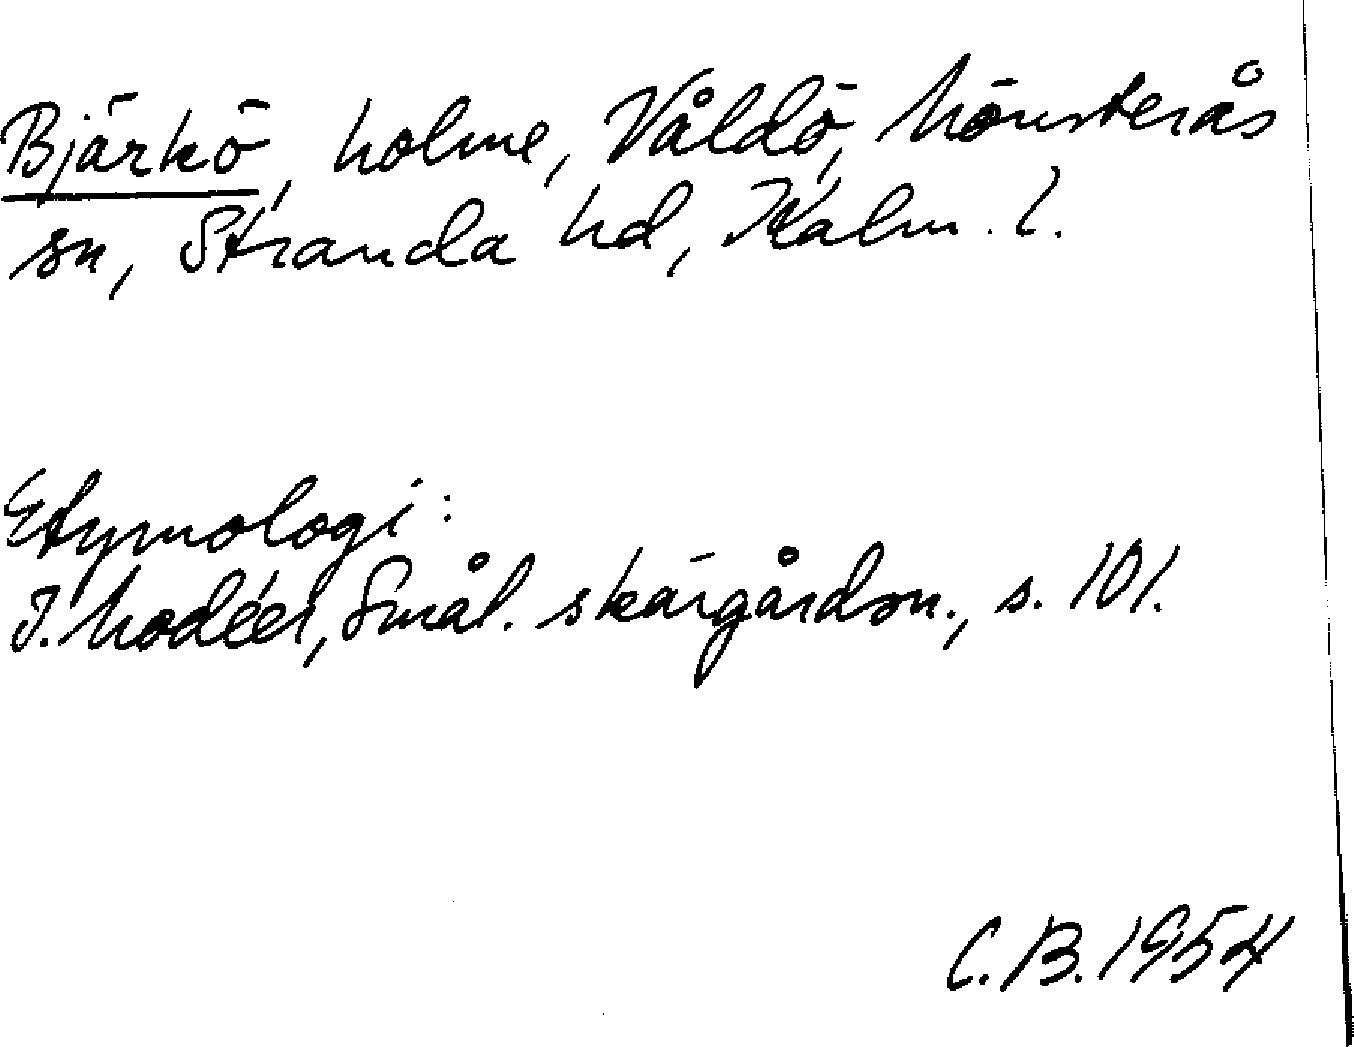 Bjärkö, holme, Våldö, Mönsterås
sn, Stranda hd, Kalm. l.
Etymologi:
I. Modéer, Smål. skärgårdsn., s. 101.
C.B. 1954